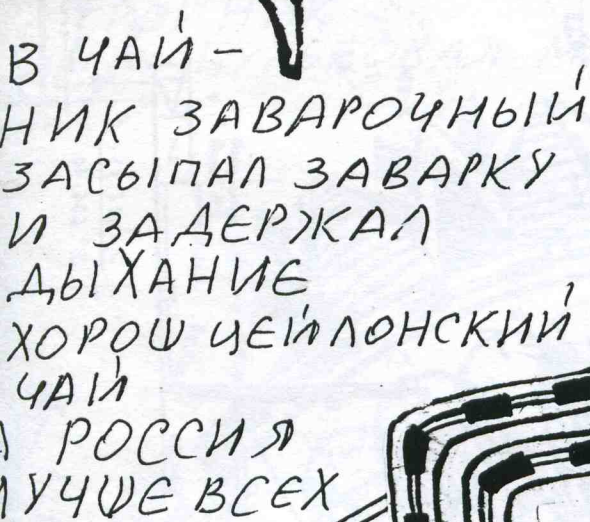 В ЧАЙ –
НИК ЗАВАРОЧНЫЙ
ЗАСЫПАЛ ЗАВАРКУ
И ЗАДЕРЖАЛ
ДЫХАНИЕ
ХОРОШ ЦЕЙЛОНСКИЙ
ЧАЙ
А РОССИЯ
ЛУЧШЕ ВСЕХ